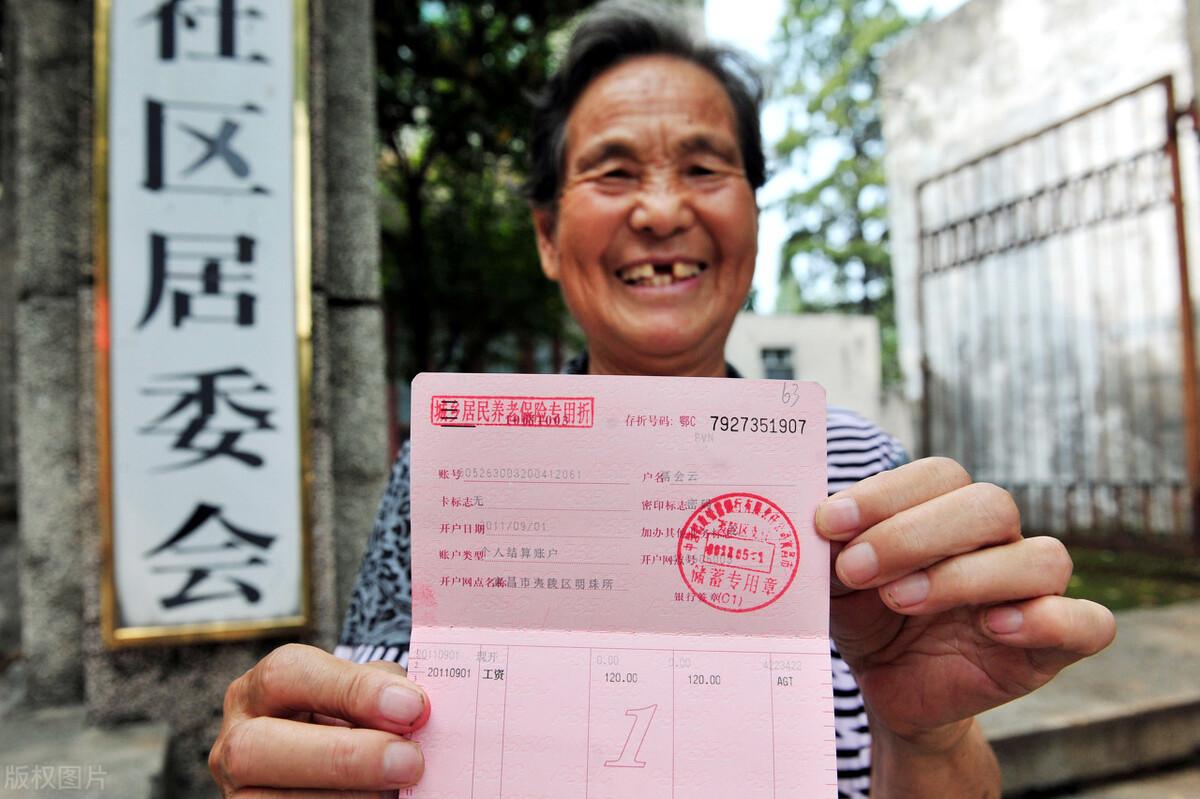 社区居委会
63
城乡居民养老保险专用折
存折号码: 鄂C 7927351907
账号 605263003200412061
户名
卡标志 无
密印标志
开户日期 2011/09/01
账户类型 个人结算账户
开户网点名称 宜昌市夷陵区明珠所
银行签章(C1)
夷陵区支
储蓄专用章
20110901 0.00 0.00 4223422
20110901 工资 120.00 120.00 AGT
1
版权图片